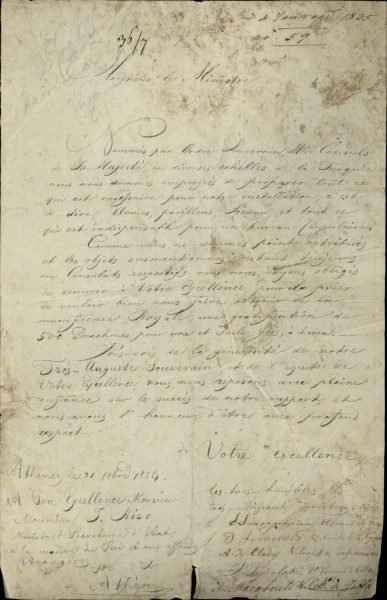 4 Janvier 1835
No. 59
3617
Monsieur le Ministre
Nommés par Ordre Souverain, Consuls
de Sa Majesté en diverses échelles de la Turquie
nous nous sommes empressés de préparer tout ce
qui est nécessaire pour notre installation, c'est
à dire Armes, pavillons, Sceaux, et tout ce
qui est indispensable pour un bureau Consulaire.
Comme nous ne sommes point retribués
et les objets susmentionnés restant toujours
aux Consulats respectifs, nous nous voyons obligés
de recourir à Votre Excellence, pour la prier
de vouloir bien nous faire obtenir de la
munificence Royale une gratification de
500 Drachmes pour une et seule fois, à chacun.
Persuadés de la générosité de notre
Très-Auguste Souverain, et de l'équité de
Votre Excellence, nous nous reposons avec pleine
confiance sur le succès de notre rapport, et
nous avons l'honneur d'être avec profond
respect
de
Votre Excellence
Athènes le 31 Xbre 1834
A Son Excellence Monsieur
Monsieur J. Rizo
Ministre Secrétaire d'Etat
à la maison du Roi et aux affaires
Etrangères
à Athènes
Les très-humbles
très-